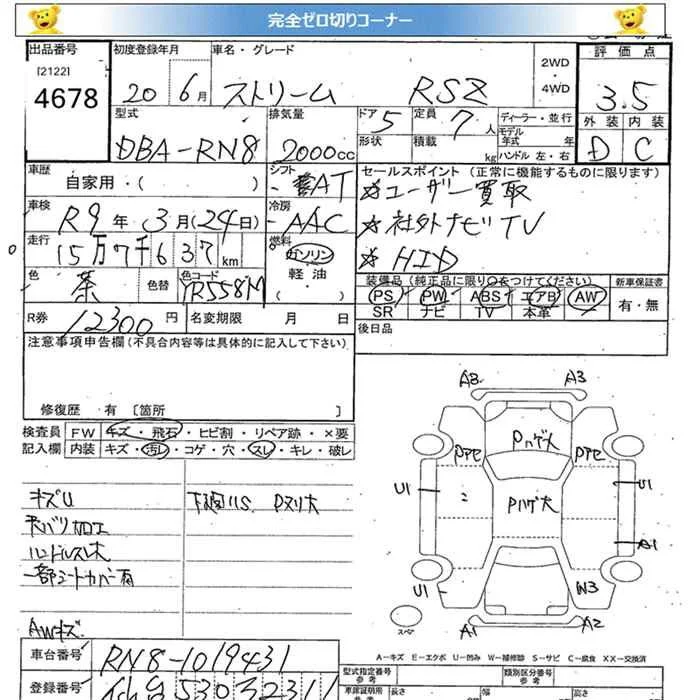 完全ゼロ切りコーナー
出品番号 初度登録年月 車名・グレード 2WD・4WD 評価点
[2122]
4678 20 6月 ストリーム RSZ 3.5
型式 排気量 ドア 5 定員 7人 ディーラー・並行 外装 内装
DBA-RN8 2000cc 形状 積載 kg モデル年式 年 D C
ハンドル 左・右
車歴 シフト セールスポイント (正常に機能するものに限ります)
自家用・( ) AT ☆ユーザー買取
車検 冷房 ☆社外ナビTV
R9年3月(24日) AAC ☆HID
走行 燃料
15万7千637km ガソリン
軽油
( )
色 色替 色コード 装備品 (純正品に限り○をつけてください) 新車保証書
茶 YR558M PS PW ABS エアB AW 有・無
SR ナビ TV 本革
R券 12300円 名変期限 月 日 後日品
注意事項申告欄(不具合内容等は具体的に記入して下さい)
修復歴 有 〔箇所 〕
検査員 FW キズ・飛石・ヒビ割・リペア跡・×要
記入欄 内装 キズ・汚レ・コゲ・穴・スレ・キレ・破レ
キズU 下廻リS Pヌリ大
天バリ加工
ハンドルスレ大
一部シートカバー有
AWキズ
A3 A3
Pハゲ大
Pアセ Pアセ
U1 Pハゲ大 U1
A1
U1 W3
スペア A1 A2
A-キズ E-エクボ U-凹み W-補修跡 S-サビ C-腐食 XX-交換済
車台番号 RN8-1019431
型式指定番号 類別区分番号
参考 参考
登録番号 仙台530
車庫証明用 長さ 幅 高さ
参考